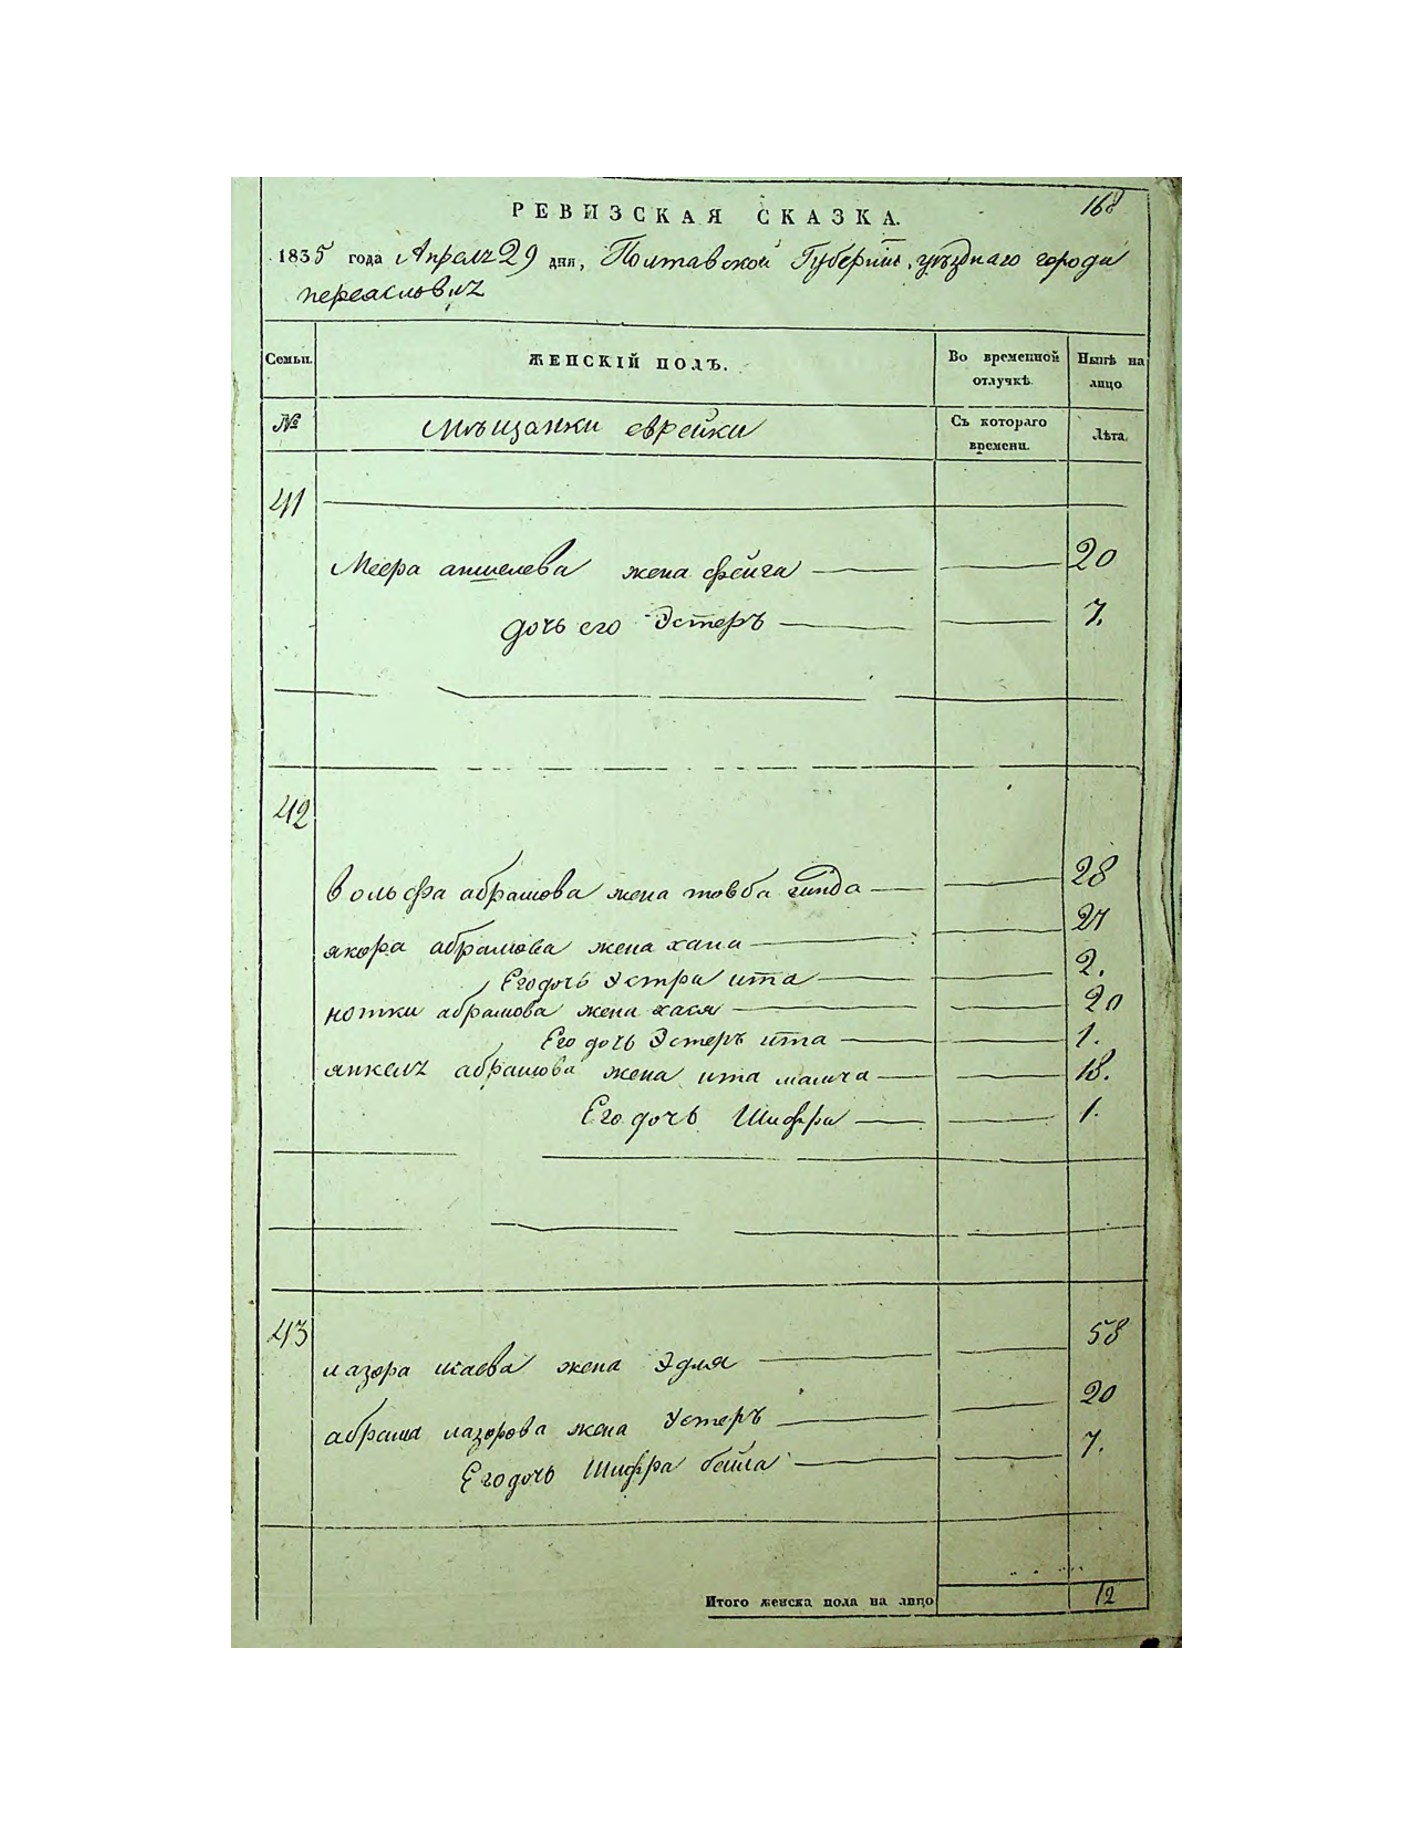 168
РЕВИЗСКАЯ СКАЗКА.
1835 года Апреля 29 дня, Полтавской Губернии, уѣзднаго города
переаславля
Семьи. ЖЕНСКІЙ ПОЛЪ. Во временной отлучкѣ. Нынѣ на лицо
№ Мѣщанки еврейки Съ котораго времени. Лѣта.
41
Меера аншелева жена фейга 20
дочь его Эстеръ 7.
42
вольфа абрамова жена товба гинда 28
абрамова жена хана 24
Его дочь Эстра ита 2.
нотки абрамова жена хася 20
Его дочь Эстеръ ита 1.
янкеля абрамова жена ита малча 18.
Его дочь Шифра 1.
43
лазора исаева жена Эдля 58
абрама лазорова жена Эстеръ 20
Его дочь Шифра бейла 7.
Итого женска пола на лицо 12